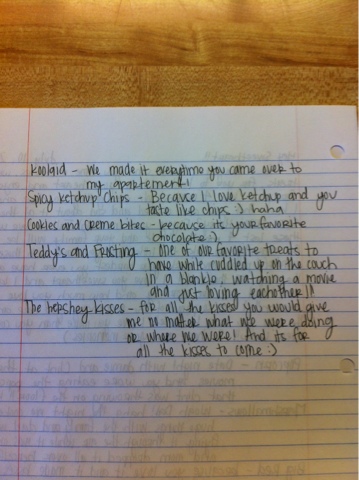 Koolaid - We made it everytime you came over to
my apartement!
Spicy ketchup chips - Because I love ketchup and you
taste like chips :) haha
Cookies and Creme bites - because its your favorite
chocolate :)
Teddy's and Frosting - one of our favorite treats to
have while cuddled up on the couch
in a blankie, watching a movie
and just loving eachother!!
The hershey kisses - for all the kisses you would give
me no matter what we were doing
or where we were! And its for
all the kisses to come :)